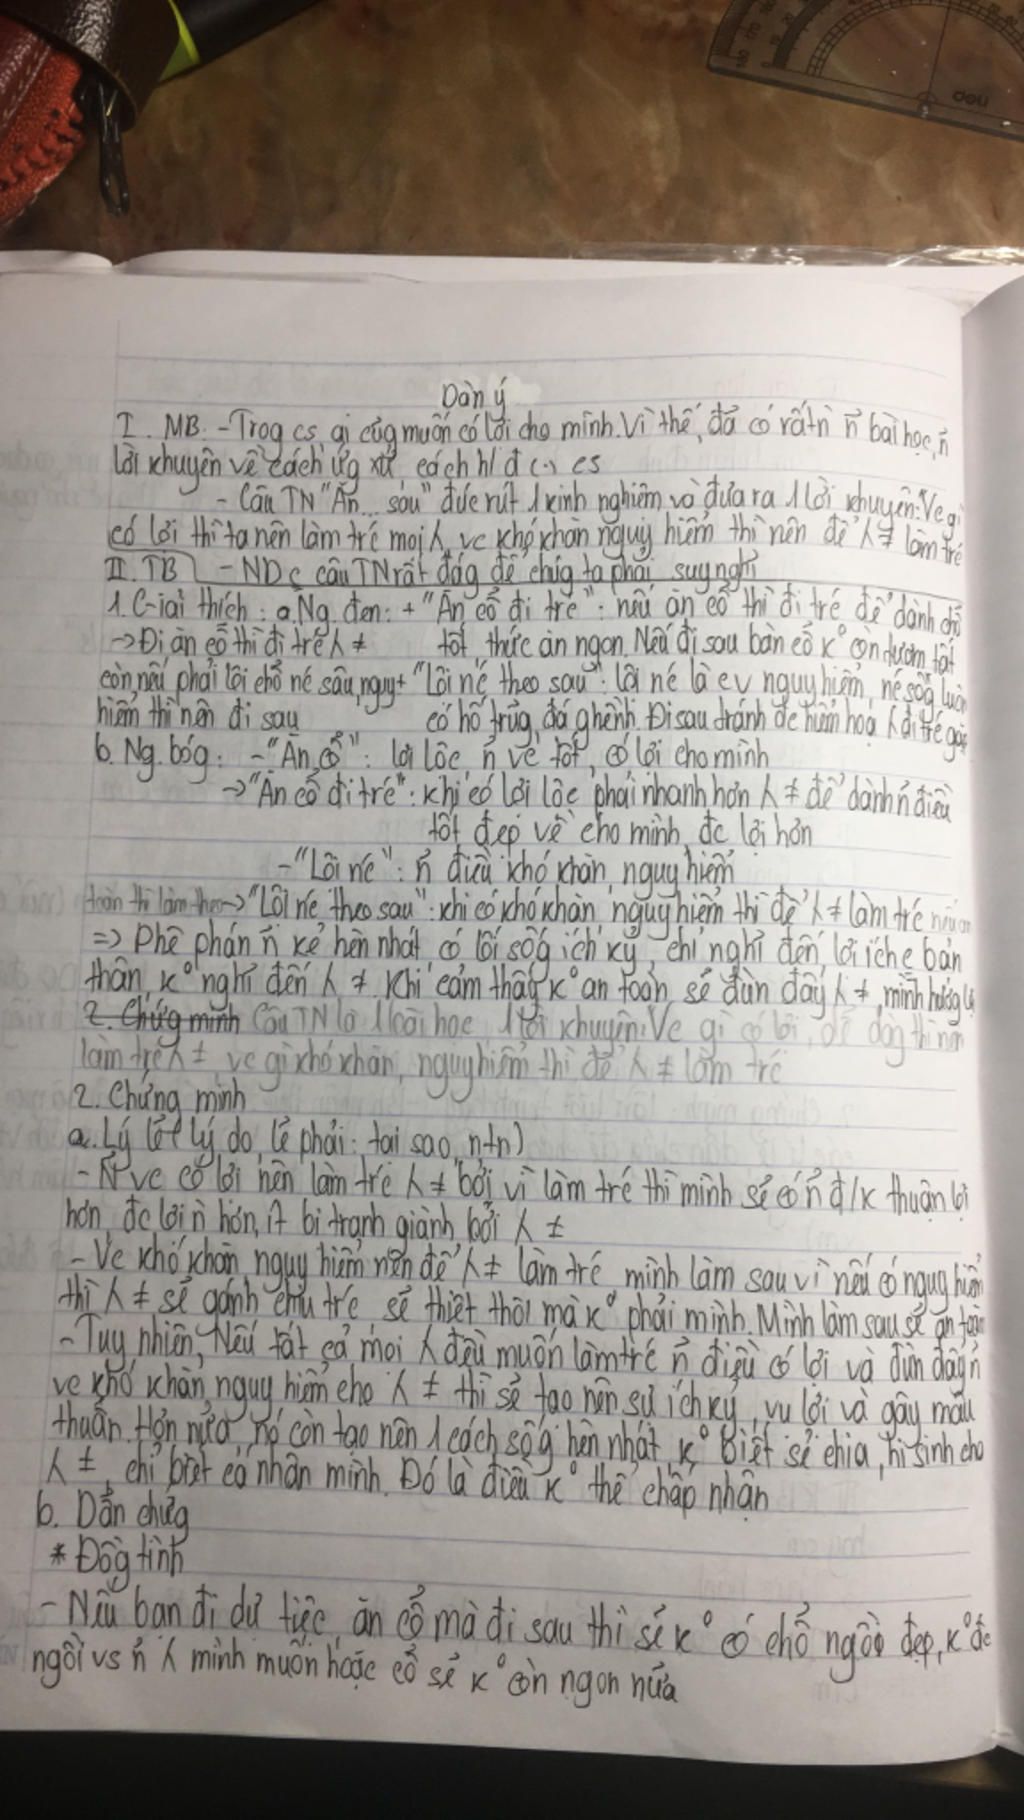 deli
Dàn ý
I. MB: - Trog cs ai cũg muốn có lợi cho mình. Vì thế, đã có rất ñ bài học, ñ
lời khuyên về cách ứg xử, cách hđ cs
- Câu TN "Ăn... sau" đúc rút 1 kinh nghiệm và đưa ra 1 lời khuyên: Vc gì
có lợi thì ta nên làm trc mọi λ, vc khó khăn nguy hiểm thì nên để λ ≠ làm trc
II. TB - ND c câu TN rất đág để chúg ta phải suy nghĩ
1. Giải thích: a. Ng. đen: + "Ăn cỗ đi trc": nếu ăn cỗ thì đi trc để dành chỗ
→ Đi ăn cỗ thì đi trc λ ≠ tốt, thức ăn ngon. Nếu đi sau bàn cỗ k° còn tươm tất
còn nếu phải lội chỗ nc sâu, nguy + "Lội nc theo sau": lội nc là cv nguy hiểm, nc sôg luôn
hiểm thì nên đi sau có hố trũg, đá ghềnh. Đi sau tránh đc hiểm hoạ λ đi trc gặp
b. Ng. bóg: - "Ăn cỗ": lợi lộc, ñ vc tốt, có lợi cho mình
→ "Ăn cỗ đi trc": khi có lợi lộc phải nhanh hơn λ ≠ để dành ñ điều
tốt đẹp về cho mình, đc lợi hơn
- "Lội nc": ñ điều khó khăn, nguy hiểm
toàn thì làm theo → "Lội nc theo sau": khi có khó khăn, nguy hiểm thì để λ ≠ làm trc nếu an
=> Phê phán ñ kẻ hèn nhát có lối sốg ích kỷ, chỉ nghĩ đến lợi ích c bản
thân, k° nghĩ đến λ ≠. Khi cảm thấy k° an toàn sẽ đùn đẩy λ ≠, mình hưởg lợi
2. Chứg minh Câu TN là 1 bài học, 1 lời khuyên: Vc gì có lợi, dễ dàg thì nên
làm trc λ ≠, vc gì khó khăn, nguy hiểm thì để λ ≠ làm trc
2. Chứng minh
a. Lý lẽ (lý do, lẽ phải: tại sao, ntn)
- Ñ vc có lợi nên làm trc λ ≠ bởi vì làm trc thì mình sẽ có ñ đ/k thuận lợi
hơn, đc lợi ñ hơn, ít bị tranh giành bởi λ ≠
- Vc khó khăn nguy hiểm nên để λ ≠ làm trc mình làm sau vì nếu có nguy hiểm
thì λ ≠ sẽ gánh chịu trc sẽ thiệt thòi mà k° phải mình. Mình làm sau sẽ an toàn
- Tuy nhiên, Nếu tất cả mọi λ đều muốn làm trc ñ điều có lợi và đùn đẩy ñ
vc khó khăn, nguy hiểm cho λ ≠ thì sẽ tạo nên sự ích kỷ, vụ lợi và gây mâu
thuẫn. Hơn nữa, nó còn tạo nên 1 cách sốg hèn nhát, k° biết sẻ chia, hi sinh cho
λ ≠, chỉ biết cá nhân mình. Đó là điều k° thể chấp nhận
b. Dẫn chứg
* Đồg tình
- Nếu bạn đi dự tiệc, ăn cỗ mà đi sau thì sẽ k° có chỗ ngồi đẹp, k° đc
ngồi vs ñ λ mình muốn hoặc cỗ sẽ k° còn ngon nữa